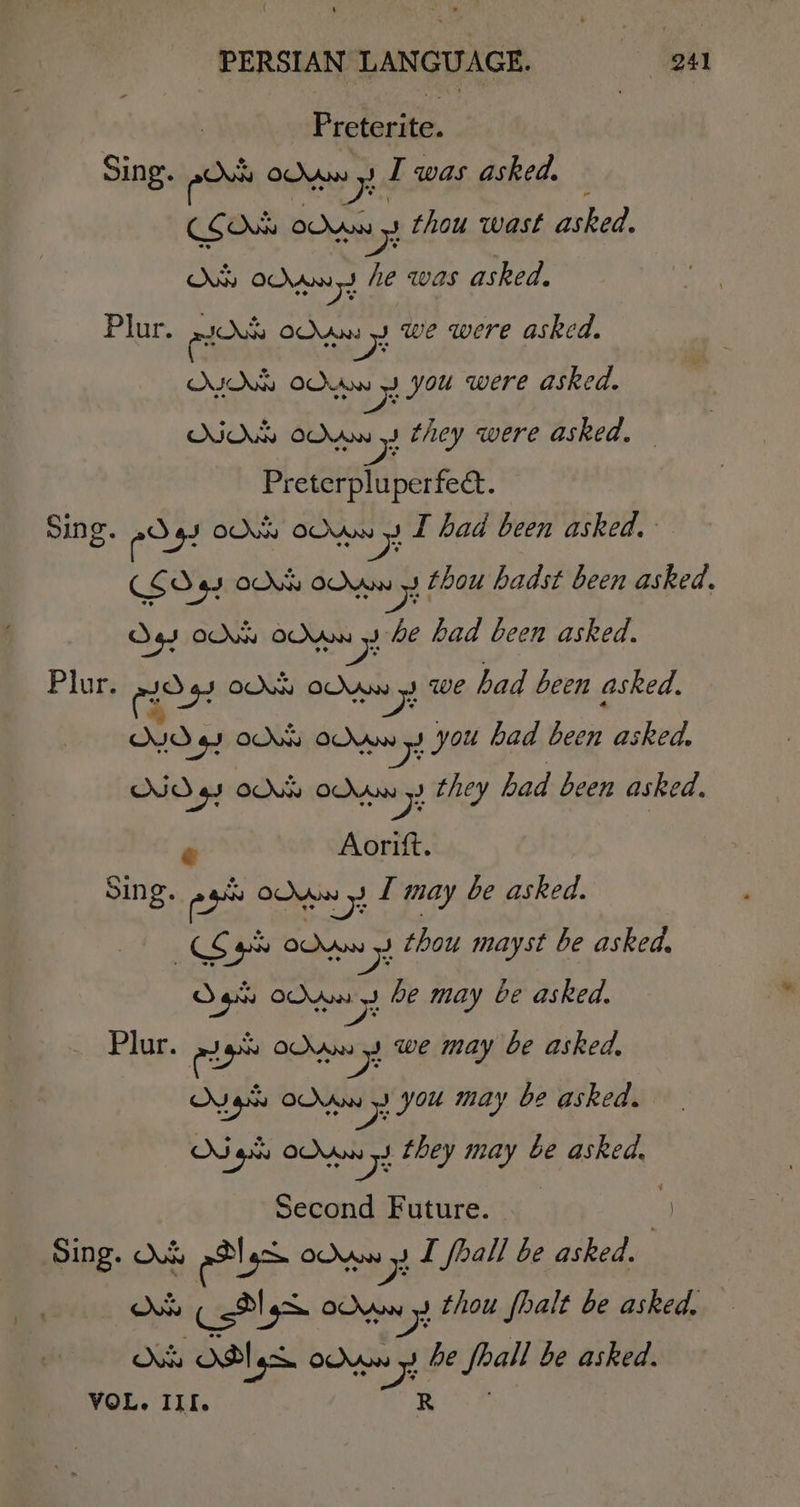 PERSIAN LANGUAGE. 241
Preterite.
Sing. پرسیده شدم I was asked.
پرسیده شدی thou wast asked.
پرسیده شد he was asked.
Plur. پرسیده شدیم we were asked.
پرسیده شدید you were asked.
پرسیده شدند they were asked.
Preterpluperfect.
Sing. پرسیده شده بودم I had been asked.
پرسیده شده بودی thou hadst been asked.
پرسیده شده بود he had been asked.
Plur. پرسیده شده بودیم we had been asked.
پرسیده شده بودید you had been asked.
پرسیده شده بودند they had been asked.
Aoriſt.
Sing. پرسیده شوم I may be asked.
پرسیده شوی thou mayst be asked.
پرسیده شود he may be asked.
Plur. پرسیده شویم we may be asked.
پرسیده شوید you may be asked.
پرسیده شوند they may be asked.
Second Future.
Sing. پرسیده خواهم شد I ſhall be asked.
پرسیده خواهی شد thou ſhalt be asked.
پرسیده خواهد شد he ſhall be asked.
VOL. III. R